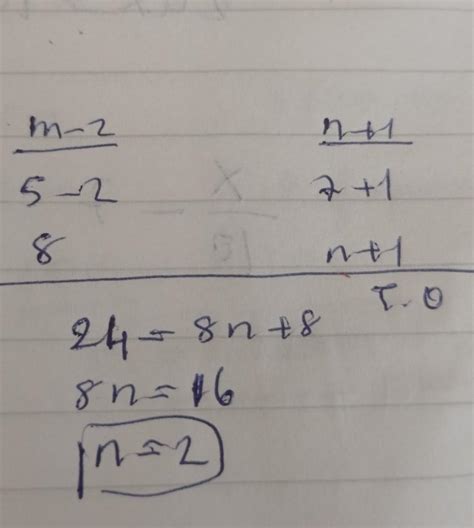 m-2 n+1
5-2 7+1
8 n+1
T.O
24 = 8n+8
8n = 16
n = 2